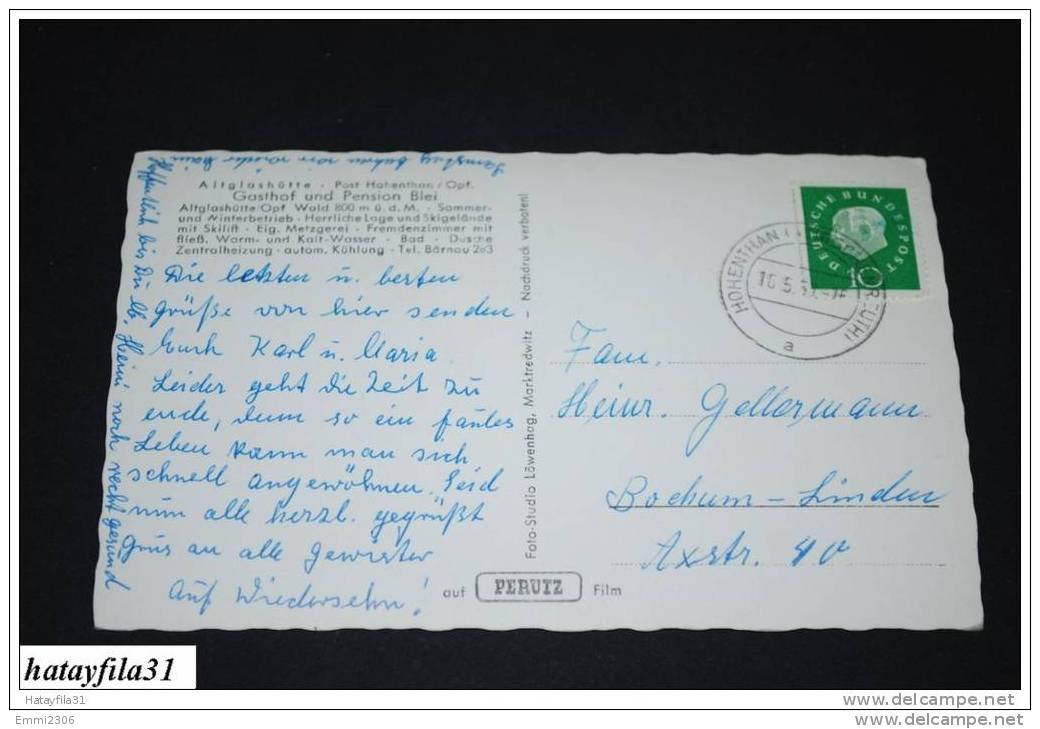 Samstag fahren wir wieder heim
Hoffentlich bis Du lb. Heini noch recht gesund
Altglashütte · Post Hohenthan/Opf.
Gasthof und Pension Blei
Altglashütte/Opf Wald 800 m ü. d. M. · Sommer-
und Winterbetrieb · Herrliche Lage und Skigelände
mit Skilift · Eig. Metzgerei · Fremdenzimmer mit
fließ. Warm- und Kalt-Wasser · Bad · Dusche
Zentralheizung · autom. Kühlung · Tel. Bärnau 263
Die letzten u. besten
grüße von hier senden
Euch Karl u. Maria.
Leider geht die Zeit zu
ende, denn so ein faules
Leben kann man sich
schnell angewöhnen. Seid
nun alle herzl. gegrüßt
Grus an alle Gewister
Auf Wiedersehn!
Foto-Studio Löwenhag, Marktredwitz - Nachdruck verboten!
auf PERUTZ Film
DEUTSCHE BUNDESPOST
10
HOHENTHAN
REUTH)
16.5.
a
Fam.
Heinr. Gellermann
Bochum-Linden
Axstr. 40
hatayfila31
Hatayfila31
Emmi2306
delcampe.net
delcampe.net